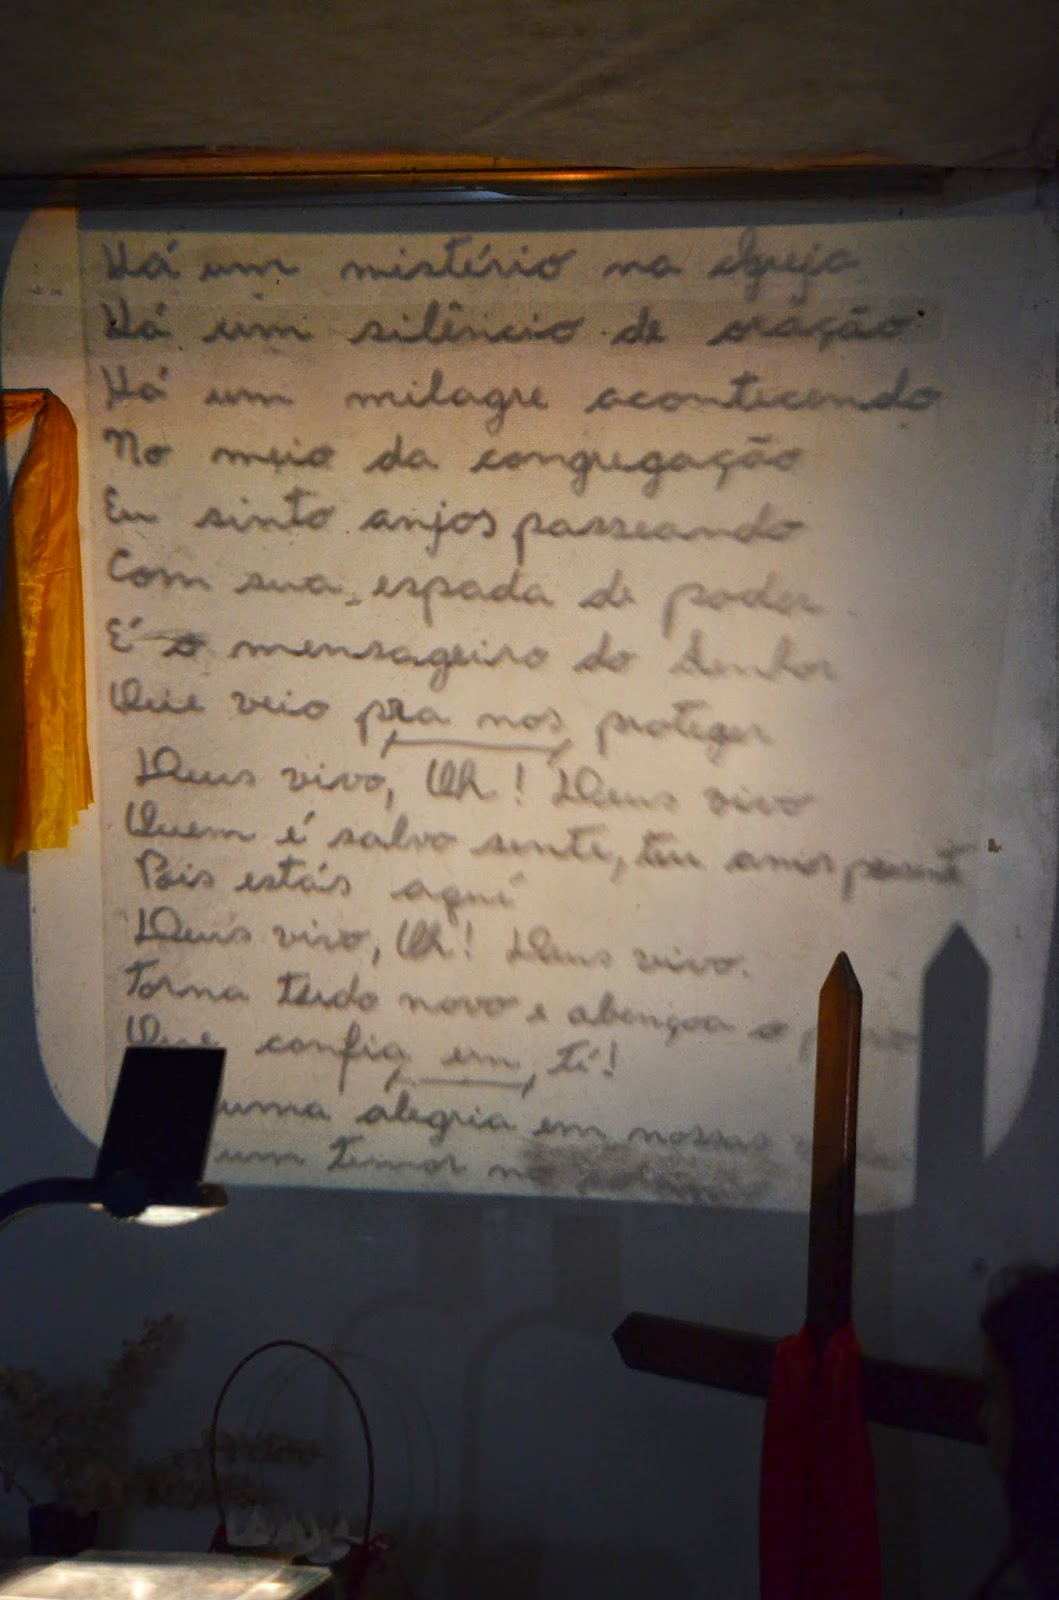 Há um mistério na igreja
Há um silêncio de oração
Há um milagre acontecendo
No meio da congregação
Eu sinto anjos passeando
Com sua espada de poder
É o mensageiro do Senhor
Que veio pra nos proteger
Deus vivo, Oh! Deus vivo
Quem é salvo sente, teu amor presente
Pois estás aqui
Deus vivo, Oh! Deus vivo.
Torna tudo novo e abençoa o povo
Que confia em ti!
uma alegria em nossas
um temor no